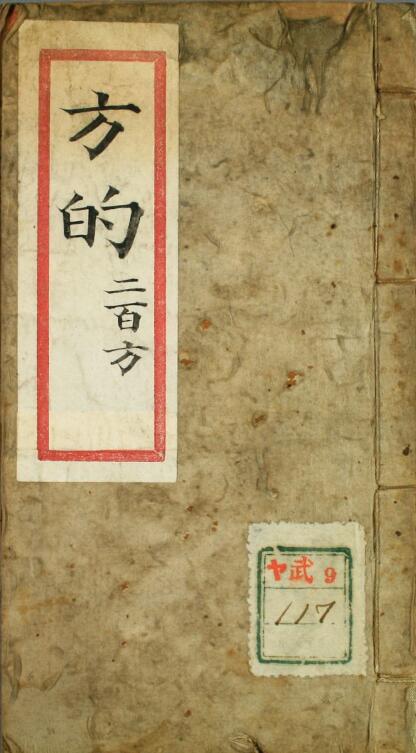 方的
二百方
ヤ武9
117